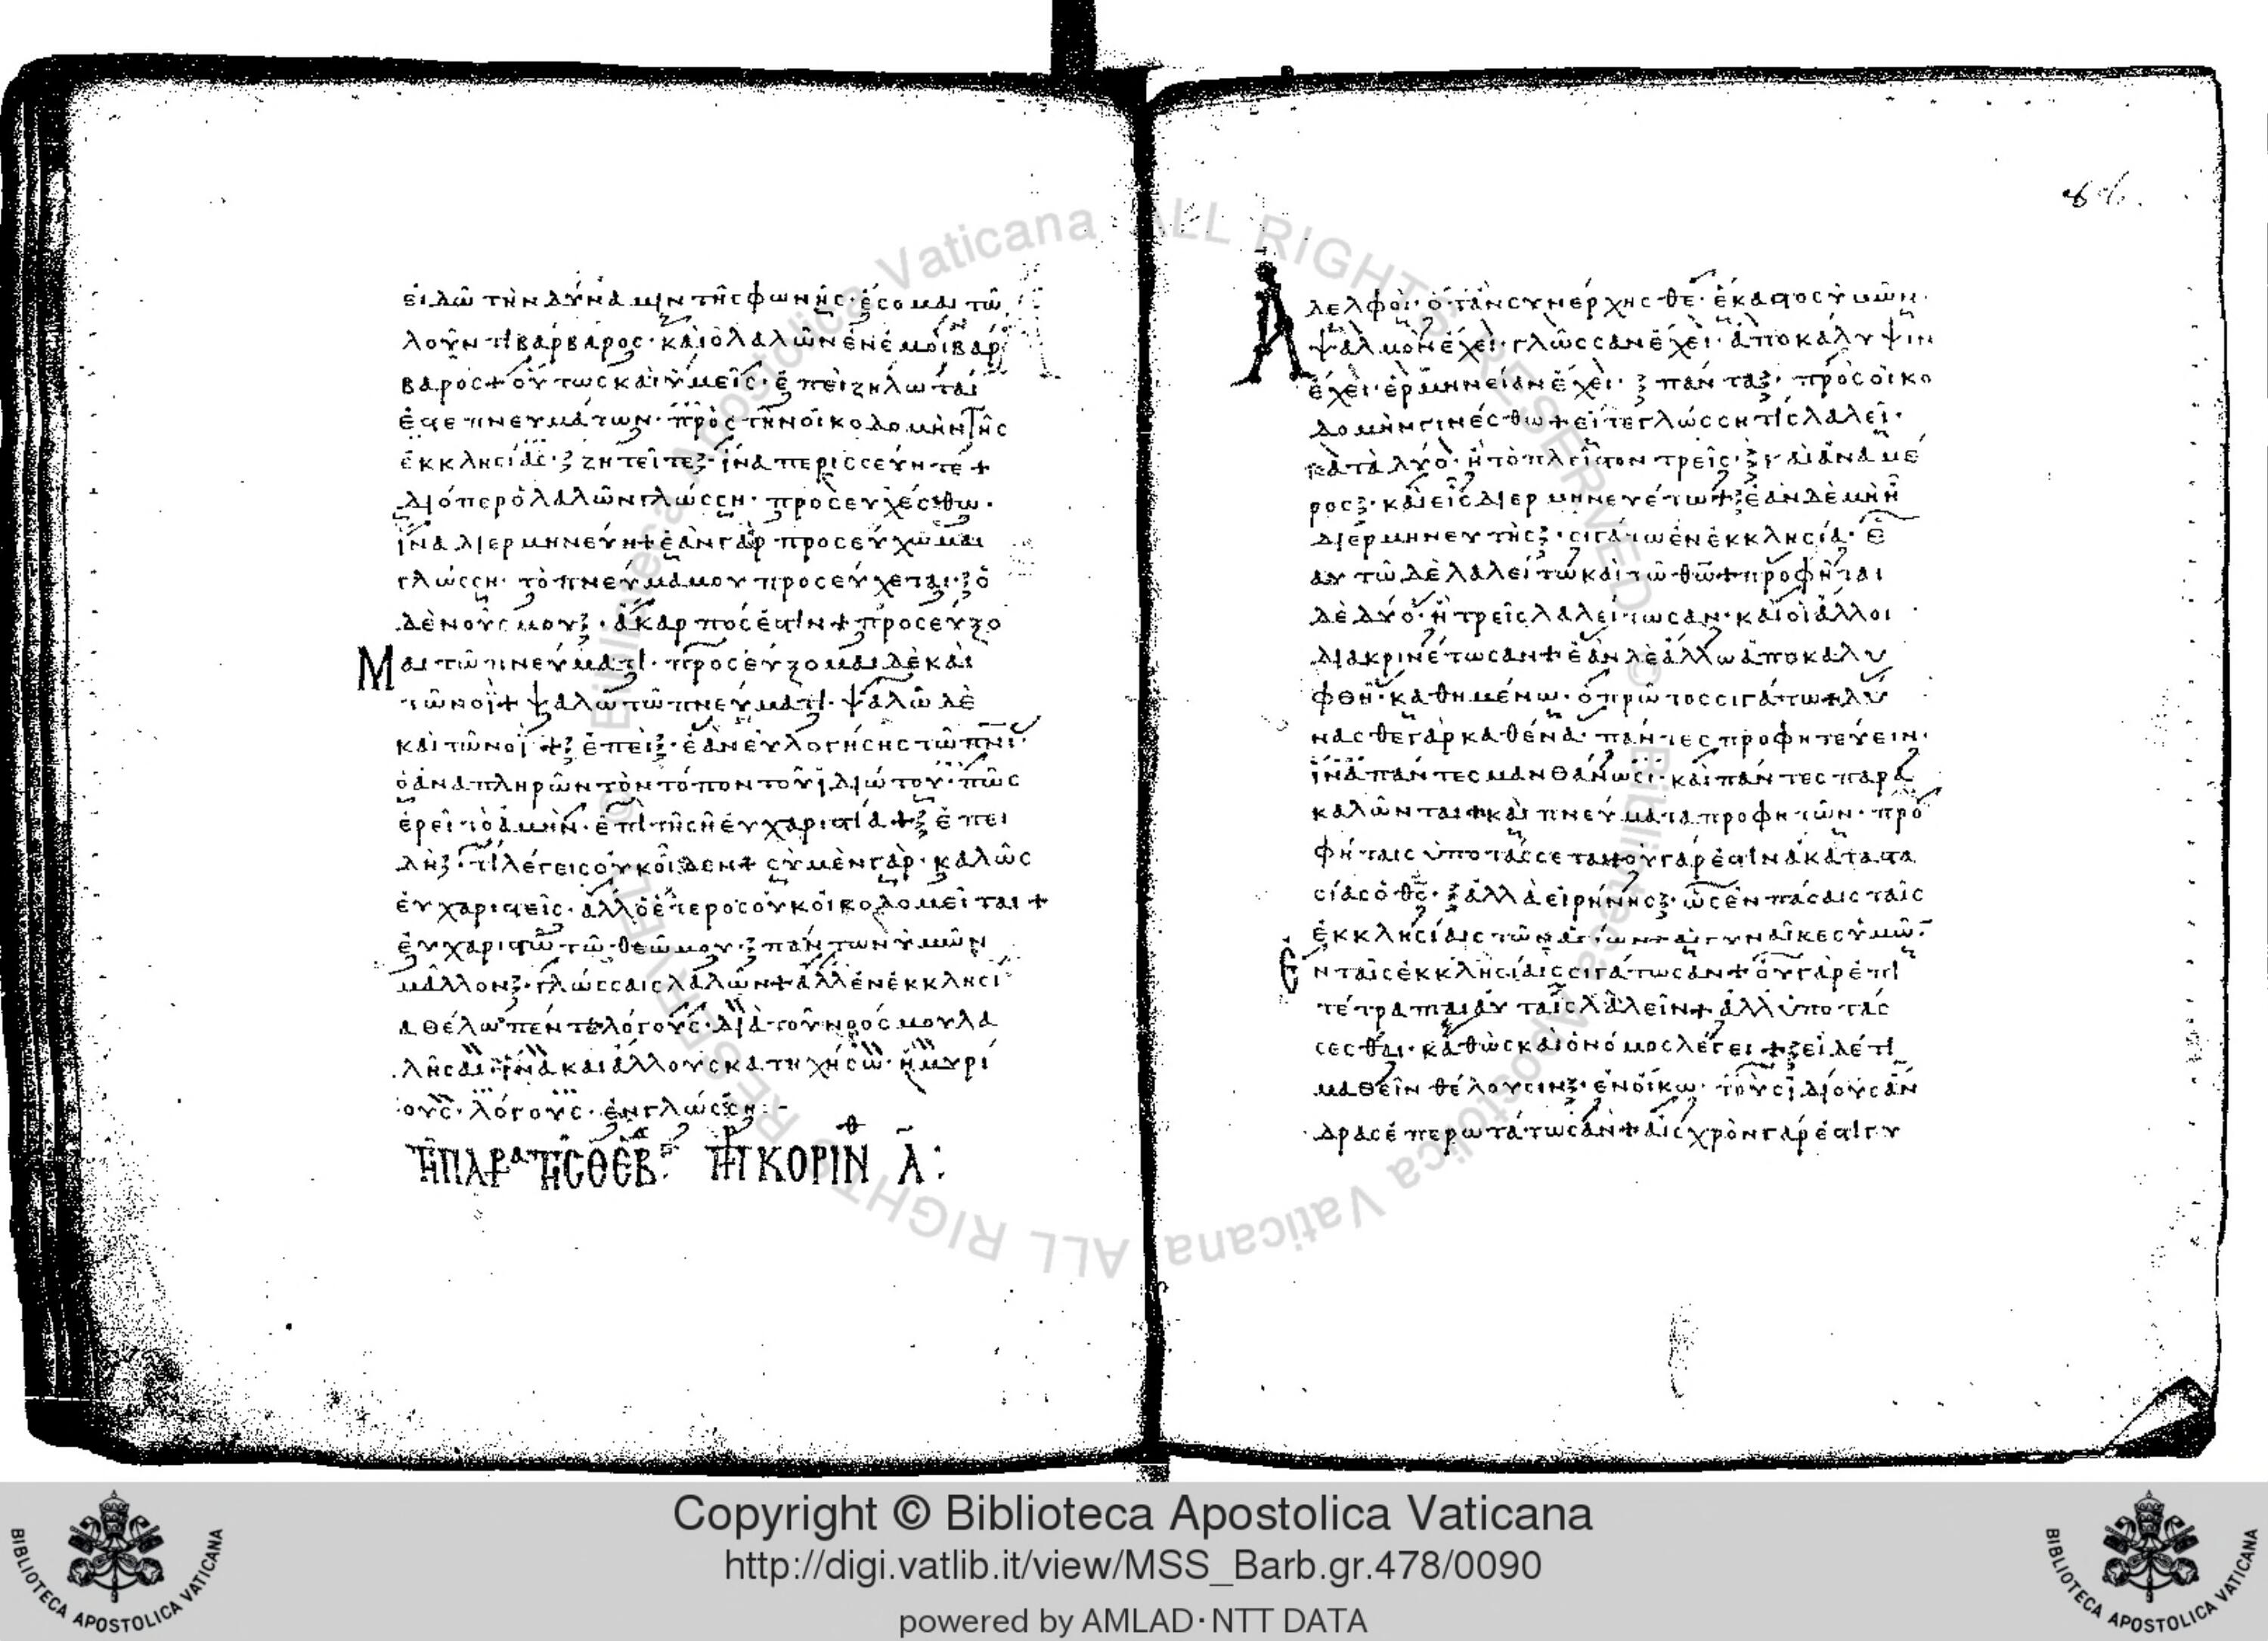 εἰδῶ τὴν δύναμιν τῆς φωνῆς· ἔσομαι τῶ
λοῦντι βάρβαρος· καὶ ὁ λαλῶν ἐν ἐμοὶ βάρ
βαρος + οὕτως καὶ ὑμεῖς· ἐπεὶ ζηλωταί
ἐστε πνευμάτων· πρὸς τὴν οἰκοδομὴν τῆς
ἐκκλησίας· ζητεῖτε· ἵνα περισσεύητε +
Διόπερ ὁ λαλῶν γλώσση· προσευχέσθω·
ἵνα διερμηνεύη + ἐὰν γὰρ προσεύχωμαι
γλώσση· τὸ πνεῦμά μου προσεύχεται· ὁ
δὲ νοῦς μου· ἄκαρπός ἐστιν + προσεύξο
Μαι τῶ πνεύματι· προσεύξομαι δὲ καὶ
τῶ νοΐ + ψαλῶ τῶ πνεύματι· ψαλῶ δὲ
καὶ τῶ νοΐ + ἐπεὶ· ἐὰν εὐλογήσης τῶ πνι·
ὁ ἀναπληρῶν τὸν τόπον τοῦ ἰδιώτου· πῶς
ἐρεῖ τὸ ἀμὴν· ἐπὶ τῆ σῆ εὐχαριστία + ἐπει
δὴ· τί λέγεις οὐκ οἶδεν + σὺ μὲν γὰρ· καλῶς
εὐχαριστεῖς· ἀλλ ὁ ἕτερος οὐκ οἰκοδομεῖται +
εὐχαριστῶ τῶ θεῶ μου· πάντων ὑμῶν
μᾶλλον· γλώσσαις λαλῶν + ἀλλ ἐν ἐκκλησί
α θέλω πέντε λόγους· διὰ τοῦ νοός μου λα
λῆσαι· ἵνα καὶ ἄλλους κατηχήσω· ἢ μυρί
ους· λόγους· ἐν γλώσση:-
Ἀδελφοὶ· ὅταν συνέρχησθε· ἕκαστος ὑμῶν·
ψαλμὸν ἔχει· γλῶσσαν ἔχει· ἀποκάλυψιν
ἔχει· ἑρμηνείαν ἔχει· πάντα· πρὸς οἰκο
δομὴν γινέσθω + εἴτε γλώσση τίς λαλεῖ·
κατὰ δύο· ἢ τὸ πλεῖστον τρεῖς· καὶ ἀνὰ μέ
ρος· καὶ εἷς διερμηνευέτω + ἐὰν δὲ μὴ ἦ
διερμηνευτής· σιγάτω ἐν ἐκκλησία· ἑ
αυτῶ δὲ λαλείτω καὶ τῶ θῶ + προφῆται
δὲ δύο· ἢ τρεῖς λαλείτωσαν· καὶ οἱ ἄλλοι
διακρινέτωσαν + ἐὰν δὲ ἄλλω ἀποκαλυ
φθῆ· καθημένω· ὁ πρῶτος σιγάτω + δύ
νασθε γὰρ καθένα· πάντες προφητεύειν·
ἵνα πάντες μανθάνωσι· καὶ πάντες παρα
καλῶνται + καὶ πνεύματα προφητῶν· προ
φήταις ὑποτάσσεται + οὐ γάρ ἐστιν ἀκαταστα
σίας ὁ θς· ἀλλὰ εἰρήνης· ὡς ἐν πάσαις ταῖς
ἐκκλησίαις τῶν ἁγίων + αἱ γυναῖκες ὑμῶν
Ἐν ταῖς ἐκκλησίαις σιγάτωσαν + οὐ γὰρ ἐπι
τέτραπται αὐταῖς λαλεῖν + ἀλλ ὑποτάσ
σεσθαι· καθὼς καὶ ὁ νόμος λέγει + εἰ δέ τι
μαθεῖν θέλουσιν· ἐν οἴκω· τοὺς ἰδίους ἄν
δρας ἐπερωτάτωσαν + αἰσχρὸν γάρ ἐστι γυ
Copyright © Biblioteca Apostolica Vaticana
http://digi.vatlib.it/view/MSS_Barb.gr.478/0090
powered by AMLAD·NTT DATA